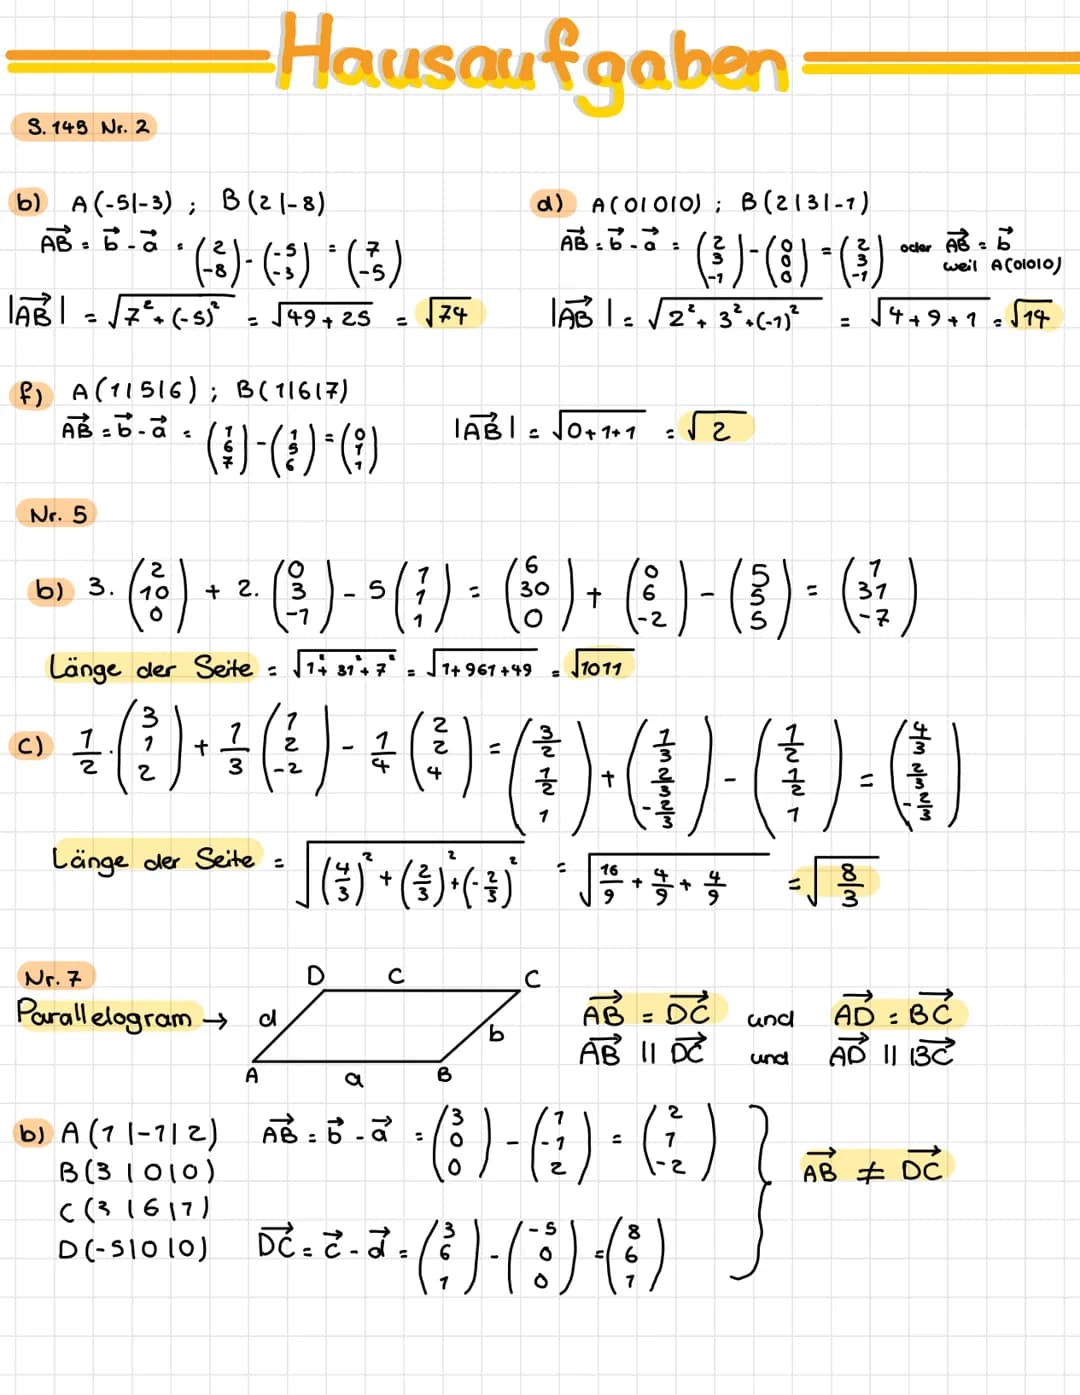 Hausaufgaben
S. 145 Nr. 2
b) A(-5|-3) ; B(2|-8)
AB⃗ = b⃗ - a⃗ = (2 -8) - (-5 -3) = (7 -5)
|AB⃗| = √7² + (-5)² = √49 + 25 = √74
d) A(0|0|0) ; B(2|3|-1)
AB⃗ = b⃗ - a⃗ = (2 3 -1) - (0 0 0) = (2 3 -1) oder AB⃗ = b⃗
weil A(0|0|0)
|AB⃗| = √2² + 3² + (-1)² = √4 + 9 + 1 = √14
f) A(1|5|6) ; B(1|6|7)
AB⃗ = b⃗ - a⃗ = (1 6 7) - (1 5 6) = (0 1 1) |AB⃗| = √0 + 1 + 1 = √2
Nr. 5
b) 3 · (2 10 0) + 2 · (0 3 -1) - 5 (1 1 1) = (6 30 0) + (0 6 -2) - (5 5 5) = (1 31 -7)
Länge der Seite = √1² + 31² + 7² = √1 + 961 + 49 = √1011
c) 1/2 · (3 1 2) + 1/3 (1 2 -2) - 1/4 (2 2 4) = (3/2 1/2 1) + (1/3 2/3 -2/3) - (1/2 1/2 1) = (4/3 2/3 -2/3)
Länge der Seite = √(4/3)² + (2/3)² + (-2/3)² = √16/9 + 4/9 + 4/9 = √8/3
Nr. 7
Parallelogram →
D c C
d b
A a B
AB⃗ = DC⃗ und AD⃗ = BC⃗
AB⃗ || DC⃗ und AD⃗ || BC⃗
b) A(1|-1|2) AB⃗ = b⃗ - a⃗ = (3 0 0) - (1 -1 2) = (2 1 -2)
B(3|0|0)
C(3|6|1)
D(-5|0|0) DC⃗ = c⃗ - d⃗ = (3 6 1) - (-5 0 0) = (8 6 1)
AB⃗ ≠ DC⃗